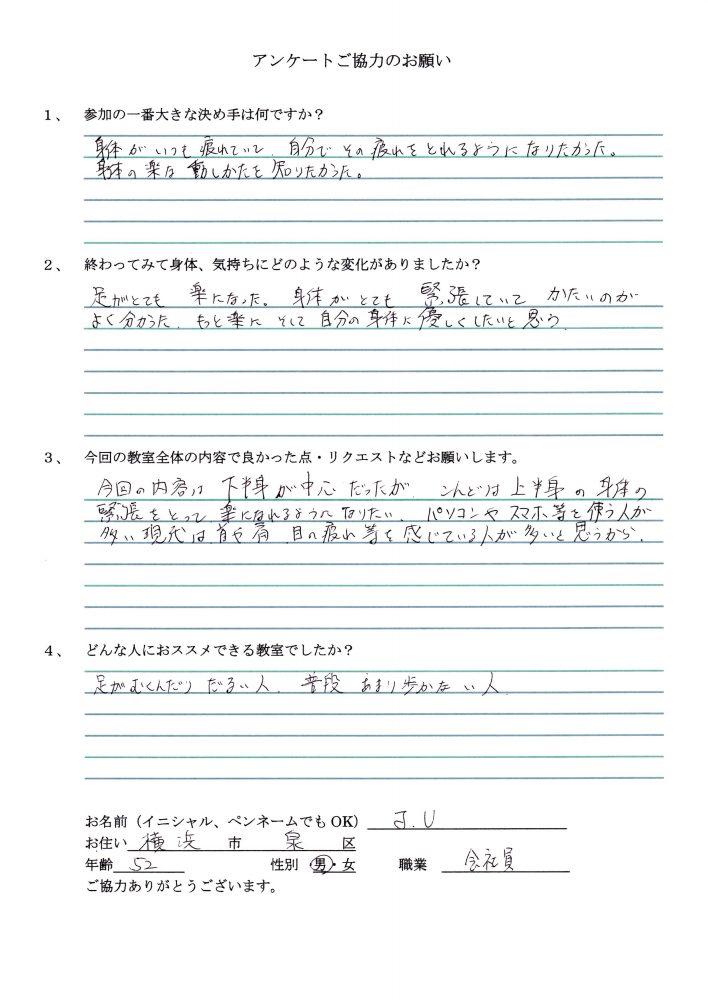 アンケートご協力のお願い
1、 参加の一番大きな決め手は何ですか？
身体がいつも疲れていて、自分でその疲れをとれるようになりたかった。
身体の楽な動しかたを知りたかった。
2、 終わってみて身体、気持ちにどのような変化がありましたか？
足がとても楽になった。身体がとても緊張していてかたいのが
よく分かった。もっと楽にそして自分の身体に優しくしたいと思う。
3、 今回の教室全体の内容で良かった点・リクエストなどお願いします。
今回の内容は下半身が中心だったが、こんどは上半身の身体の
緊張をとって楽になれるようになりたい。パソコンやスマホ等を使う人が
多い現代は首や肩、目の疲れ等を感じている人が多いと思うから。
4、 どんな人におススメできる教室でしたか？
足がむくんだりだるい人、普段あまり歩かない人
お名前（イニシャル、ペンネームでも OK） J.U
お住い 横浜 市 泉 区
年齢 52 性別 男・女 職業 会社員
ご協力ありがとうございます。